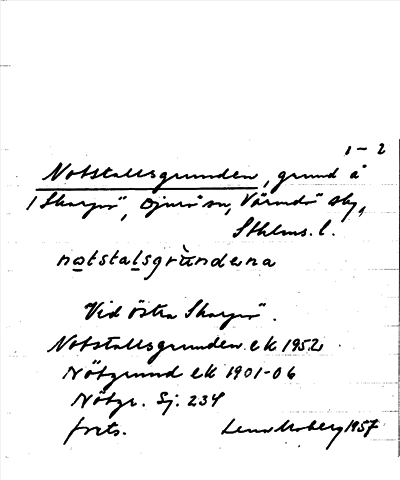 1-2
Notstallsgrunden, grund å
1 Skarpö, Djurö sn, Värmdö skg,
Sthlms. l.
notstalsgrùndena
Vid Östra Skarpö.
Notstallsgrunden ek 1952
Nötgrund ek 1901-06
Nötgr. Sj. 234
forts. Lena Moberg 1957